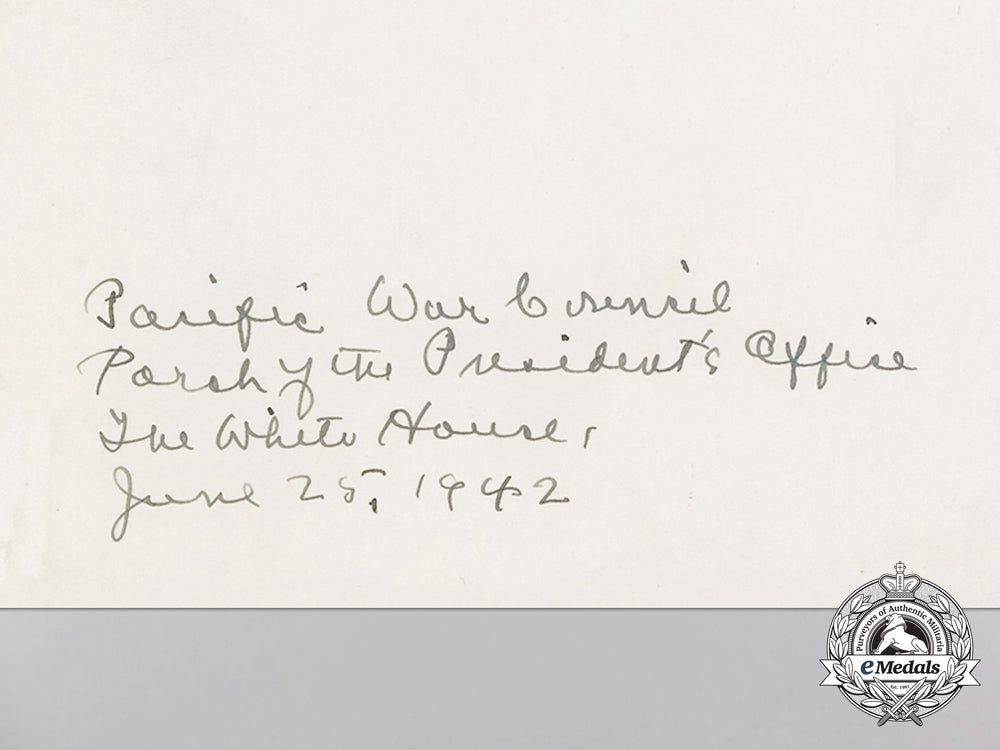 Pacific War Council
Porch of the President's Office
The White House,
June 25, 1942
Purveyors of Authentic Militaria
eMedals
Est. 1985